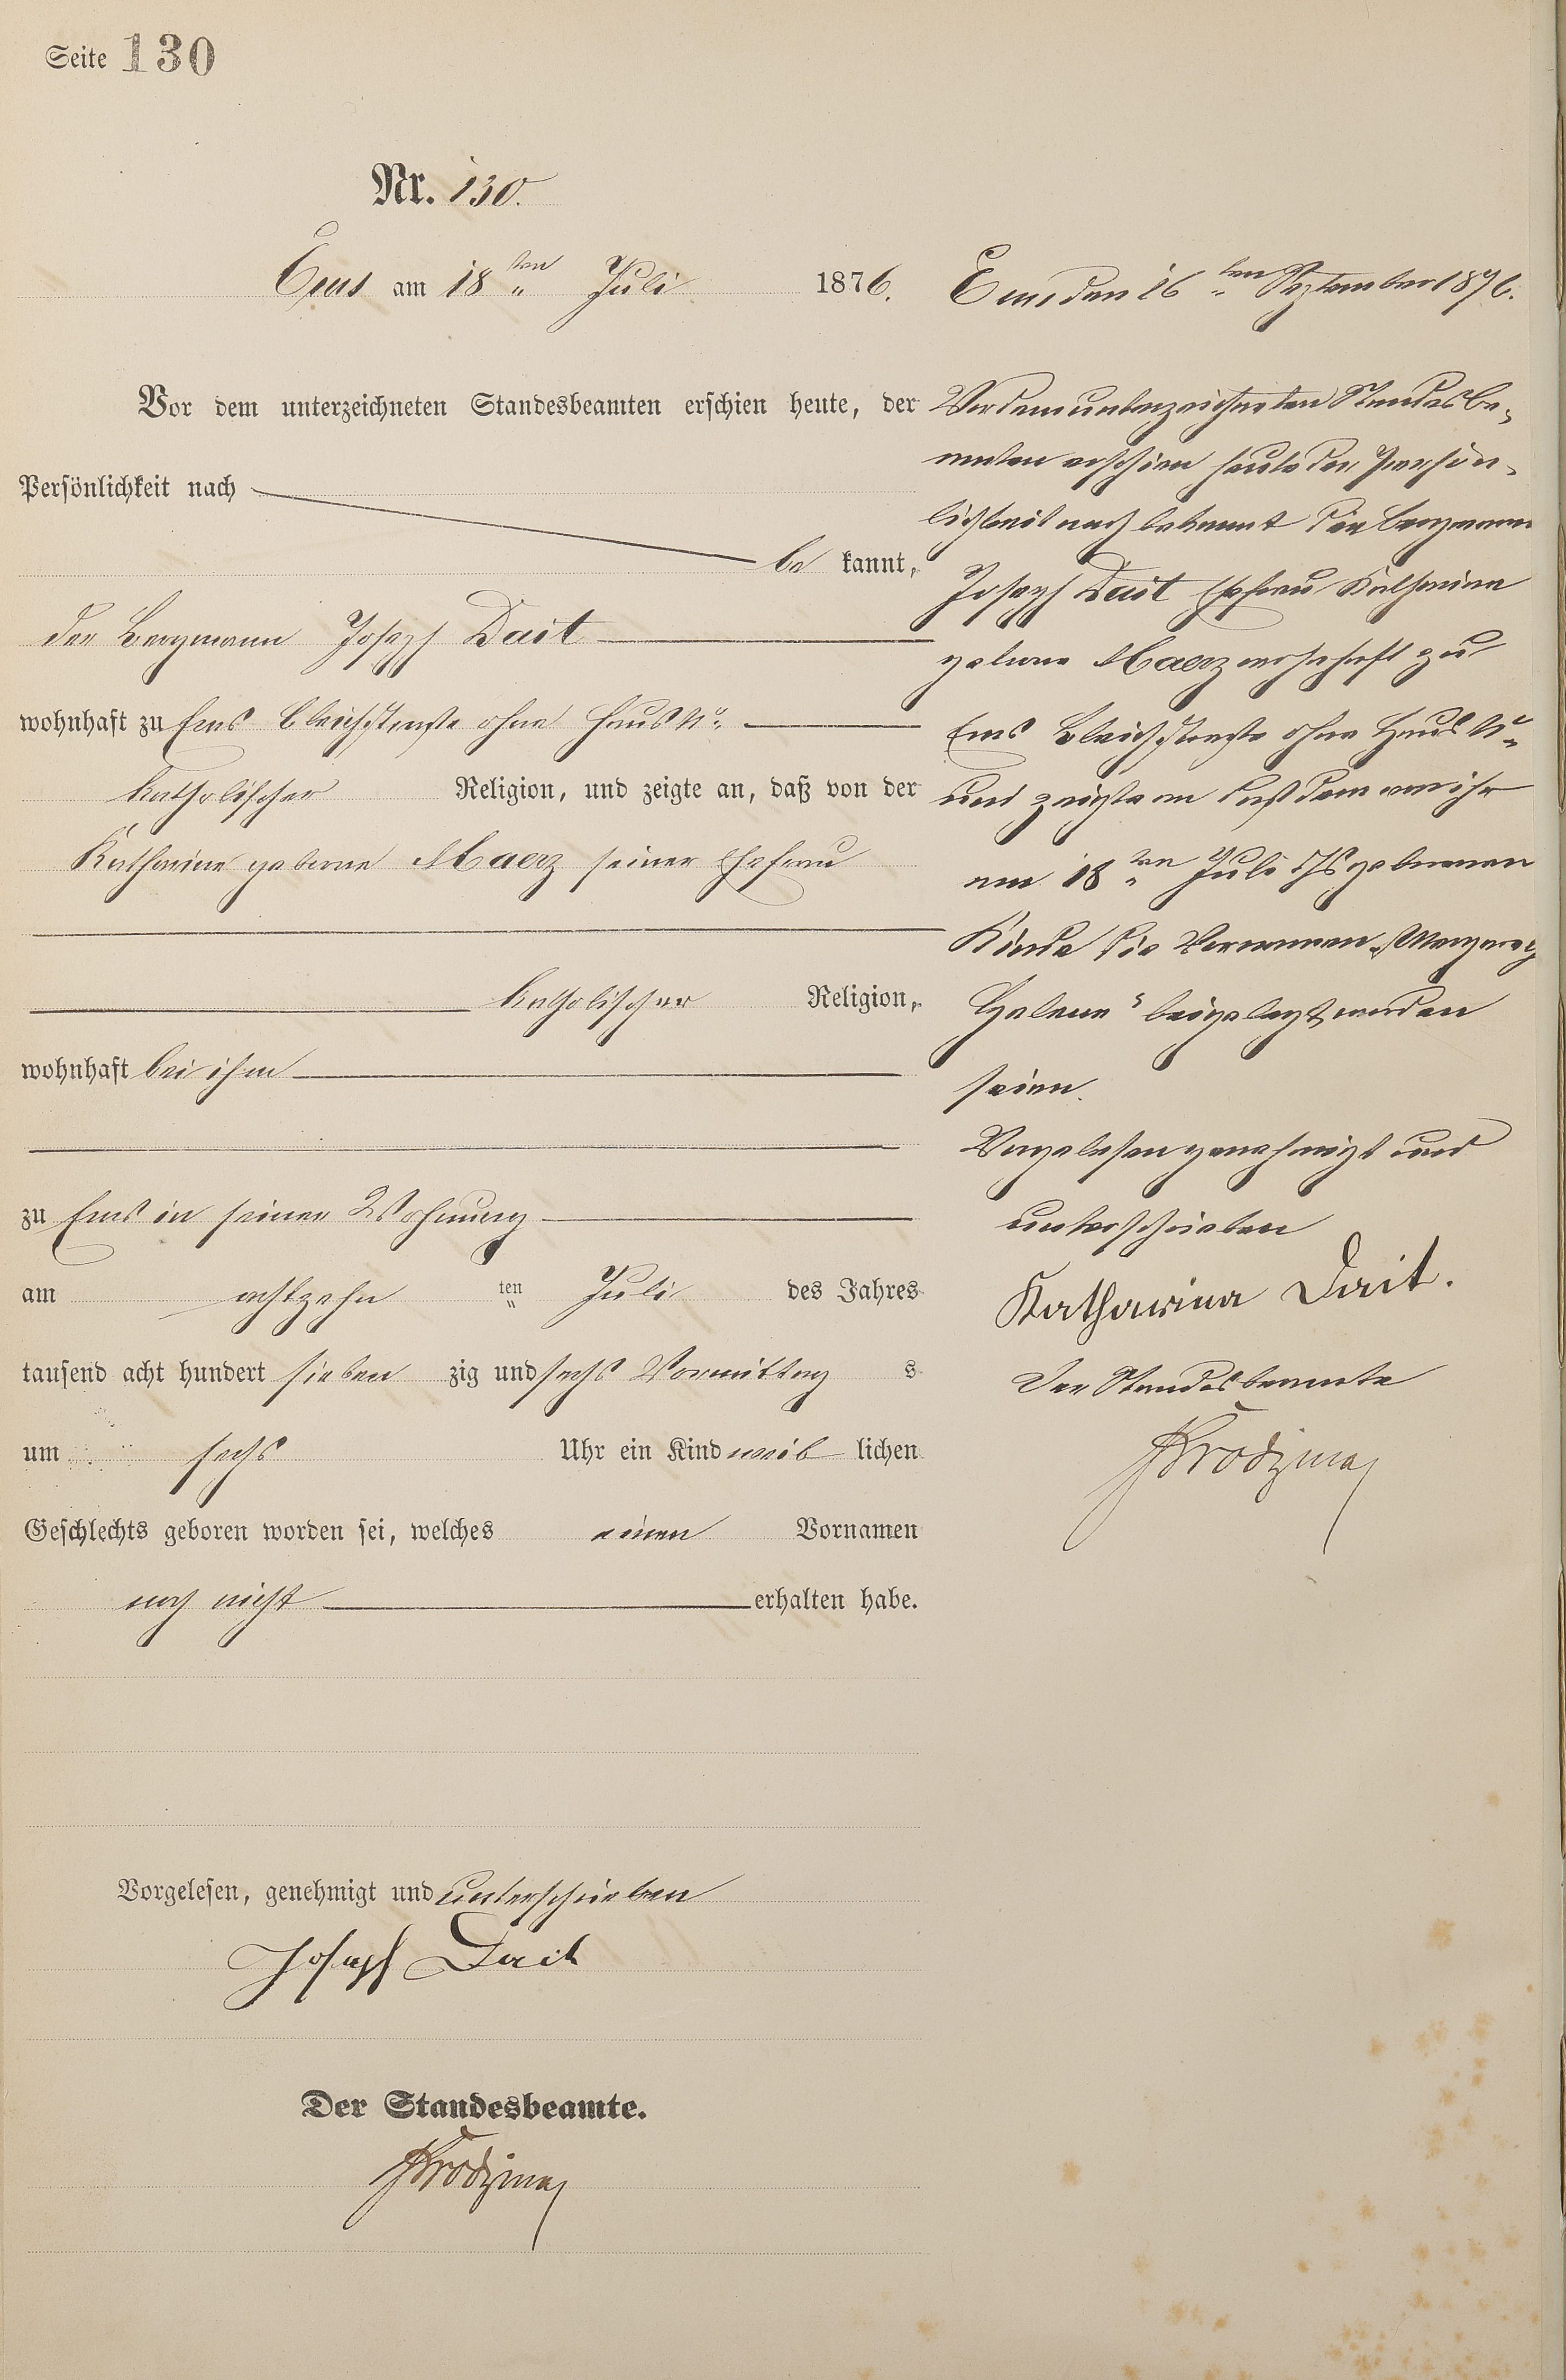 Seite 130
Nr. 130.
Ems am 18ten Juli 1876.
Vor dem unterzeichneten Standesbeamten erschien heute, der
Persönlichkeit nach
be kannt,
der Bergmann Joseph Dait
wohnhaft zu Ems Bleichstraße ohne Haus No.
katholischer Religion, und zeigte an, daß von der
Katharine geborne Maerz seiner Ehefrau
katholischer Religion,
wohnhaft bei ihm
zu Ems in seiner Wohnung
am achtzehn ten Juli des Jahres
tausend acht hundert sieben zig und sechs Vormittag s
um sechs Uhr ein Kind weib lichen
Geschlechts geboren worden sei, welches einen Vornamen
noch nicht erhalten habe.
Vorgelesen, genehmigt und unterschrieben
Joseph Dait
Der Standesbeamte.
Ems den 16ten September 1876.
Vor dem unterzeichneten Standesbe-
amten erschien heute der Persön-
lichkeit nach bekannt die Bergmann
Joseph Dait Ehefrau Katharina
geborne Maerz wohnhaft zu
Ems Bleichstraße ohne Haus No.
und zeigte an daß dem von ihr
am 18ten Juli geborenen
Kinde die Vornamen
Helene" beigelegt worden
seien.
Vorgelesen genehmigt und
unterschrieben
Katharina Dait.
Der Standesbeamte